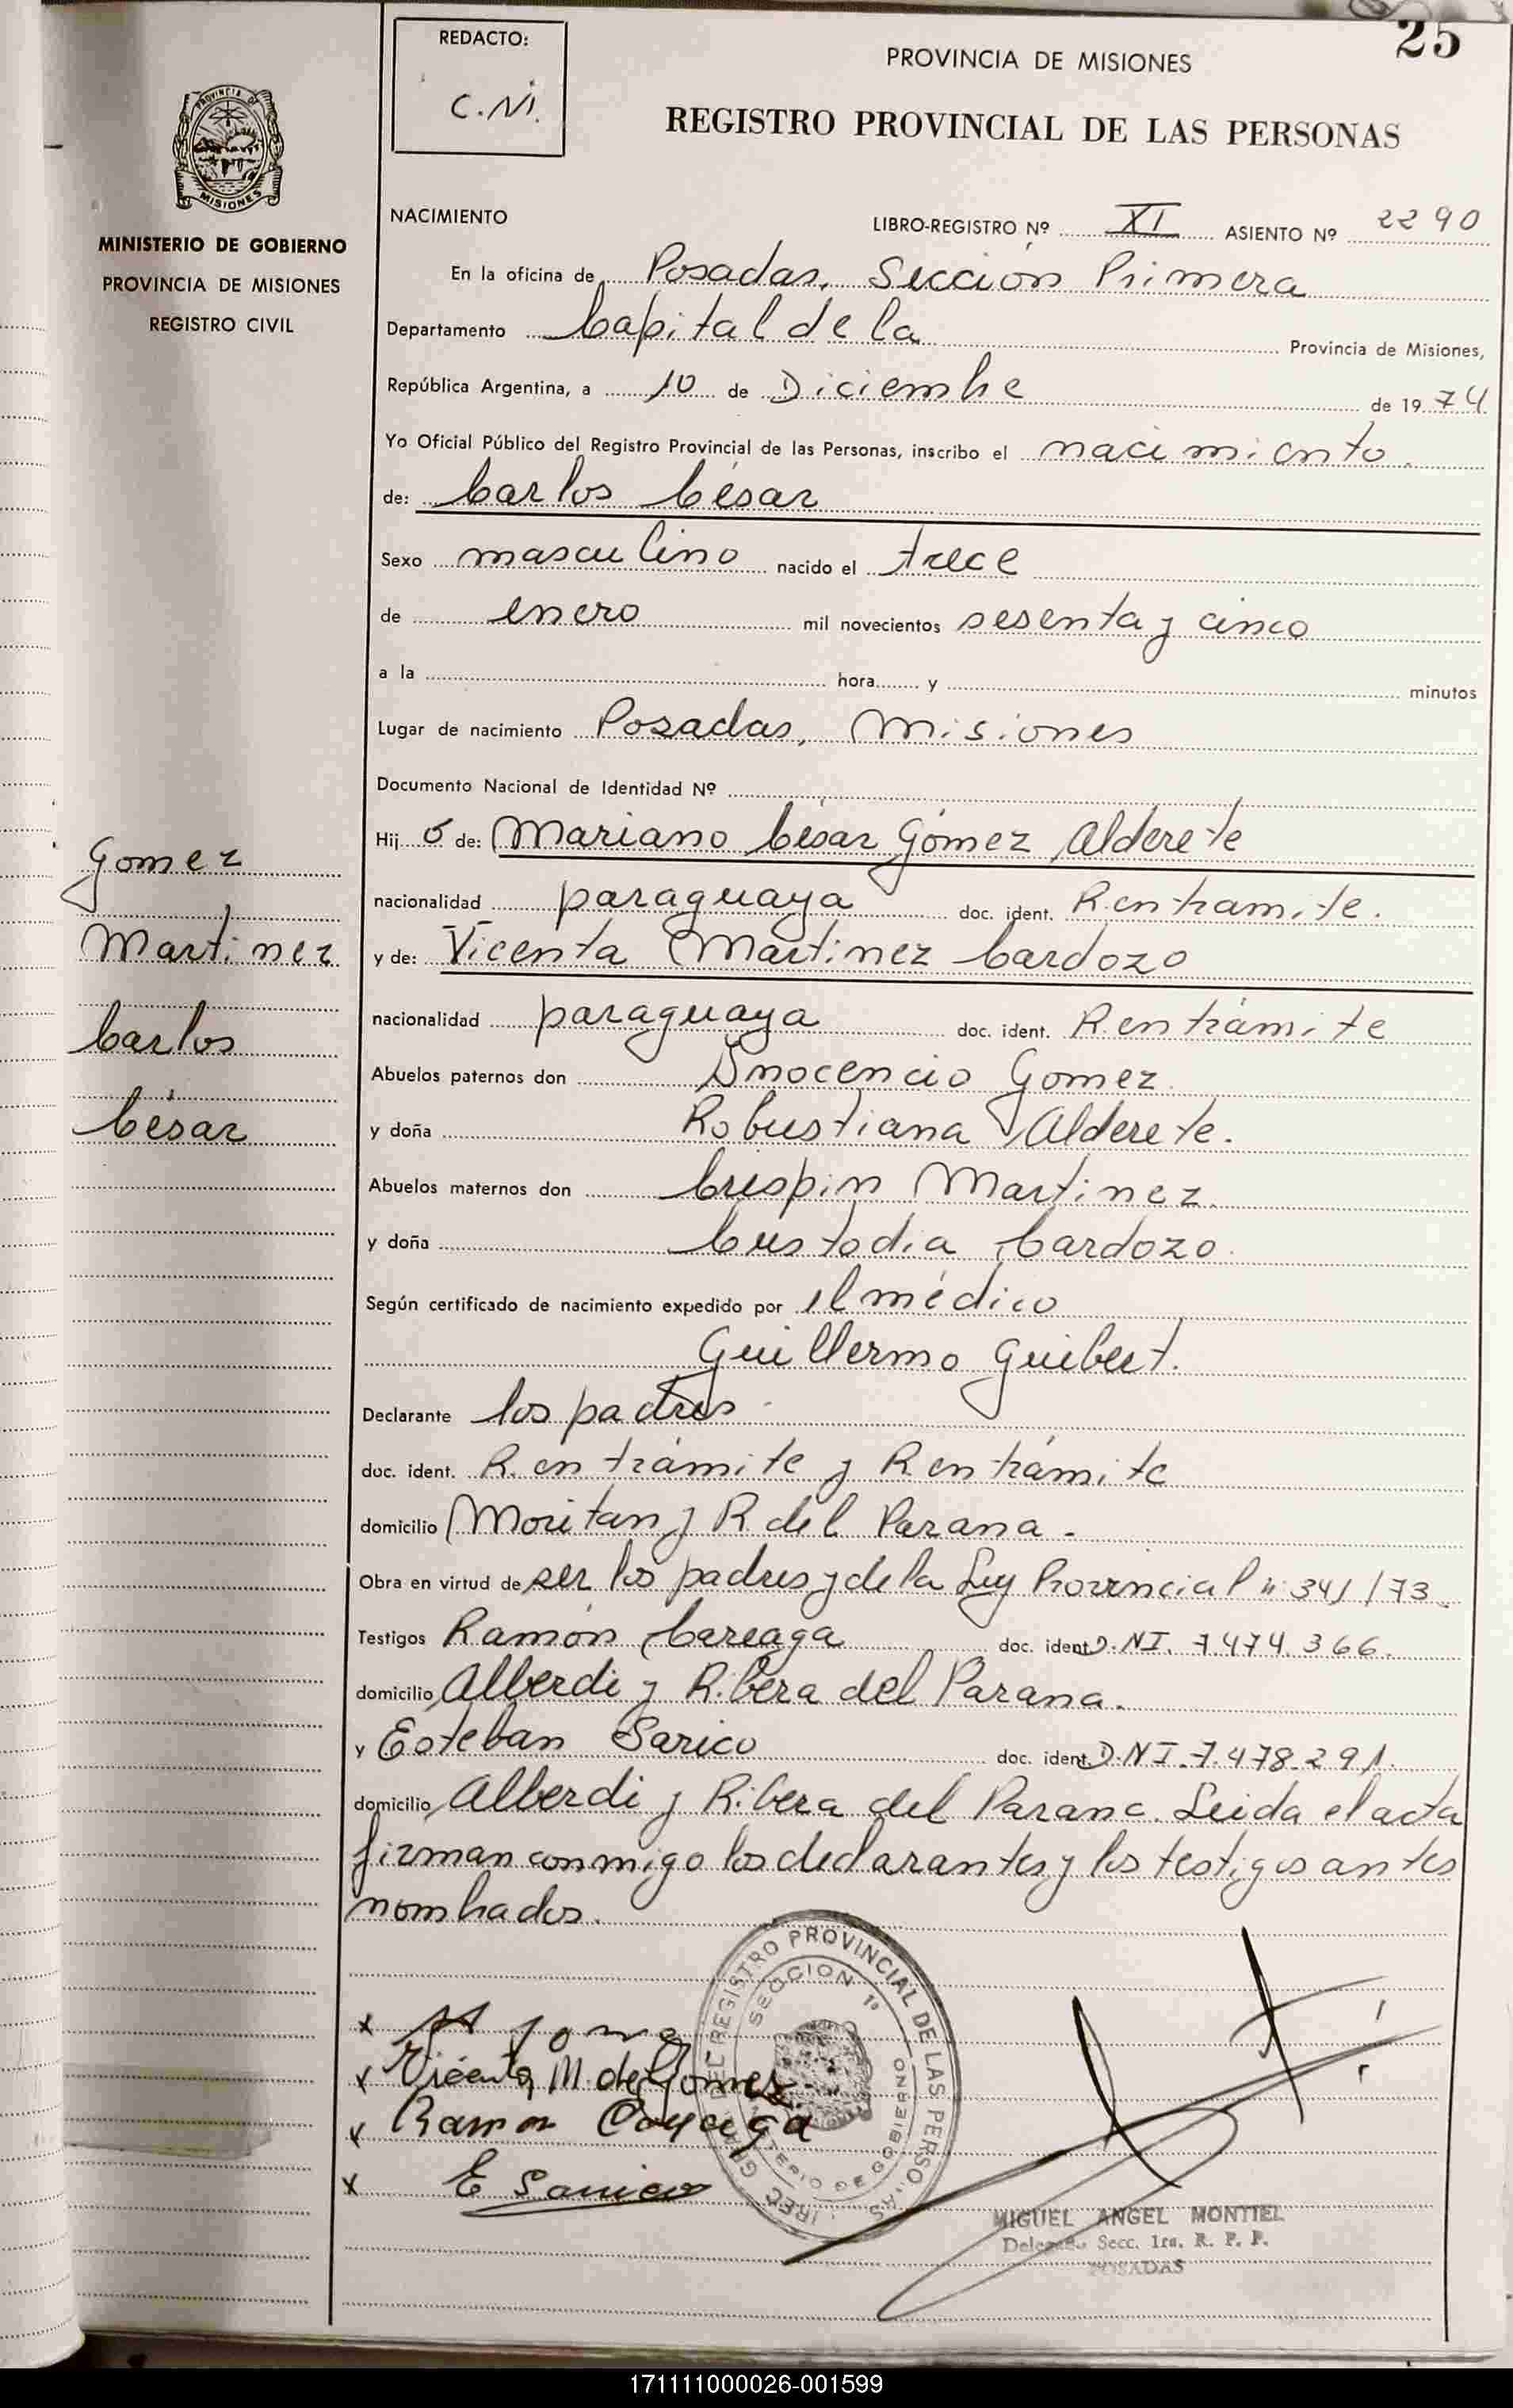 25
REDACTO:
C.N.
PROVINCIA DE MISIONES
REGISTRO PROVINCIAL DE LAS PERSONAS
PROVINCIA DE
MISIONES
MINISTERIO DE GOBIERNO
PROVINCIA DE MISIONES
REGISTRO CIVIL
NACIMIENTO
LIBRO-REGISTRO Nº XI ASIENTO Nº 2290
En la oficina de Posadas, Sección Primera
Departamento Capital de la Provincia de Misiones,
República Argentina, a 10 de Diciembre de 1974
Yo Oficial Público del Registro Provincial de las Personas, inscribo el nacimiento
de: Carlos César
Sexo masculino nacido el trece
de enero mil novecientos sesenta y cinco
a la hora y minutos
Lugar de nacimiento Posadas, Misiones
Documento Nacional de Identidad Nº
Hijo de: Mariano César Gómez Alderete
nacionalidad paraguaya doc. ident. R. en tramite.
y de: Vicenta Martinez Cardozo
nacionalidad paraguaya doc. ident. R. en trámite
Abuelos paternos don Inocencio Gomez
y doña Robustiana Alderete.
Abuelos maternos don Crispin Martinez
y doña Custodia Cardozo.
Según certificado de nacimiento expedido por el médico
Guillermo Guibert.
Declarante los padres
doc. ident. R. en trámite y R en trámite
domicilio Moritan y R. del Parana.
Obra en virtud de ser los padres y de la Ley Provincial n: 341/73
Testigos Ramón Careaga doc. ident D.NI. 7.474.366.
domicilio Alberdi y Ribera del Parana.
y Esteban Sarico doc. ident. D.NI. 7.478.291.
domicilio Alberdi y Ribera del Parana. Leida el acta
firman conmigo los declarantes y los testigos antes
nombrados.
Gomez
Martinez
Carlos
César
Vicenta M. de Gomez
Ramon
E Sarico
REGISTRO PROVINCIAL DE LAS PERSONAS
SECCION 1ª
DE GOBIERNO
MIGUEL ANGEL MONTIEL
Delegado Secc. 1ra. R. P. P.
POSADAS
171111000026-001599